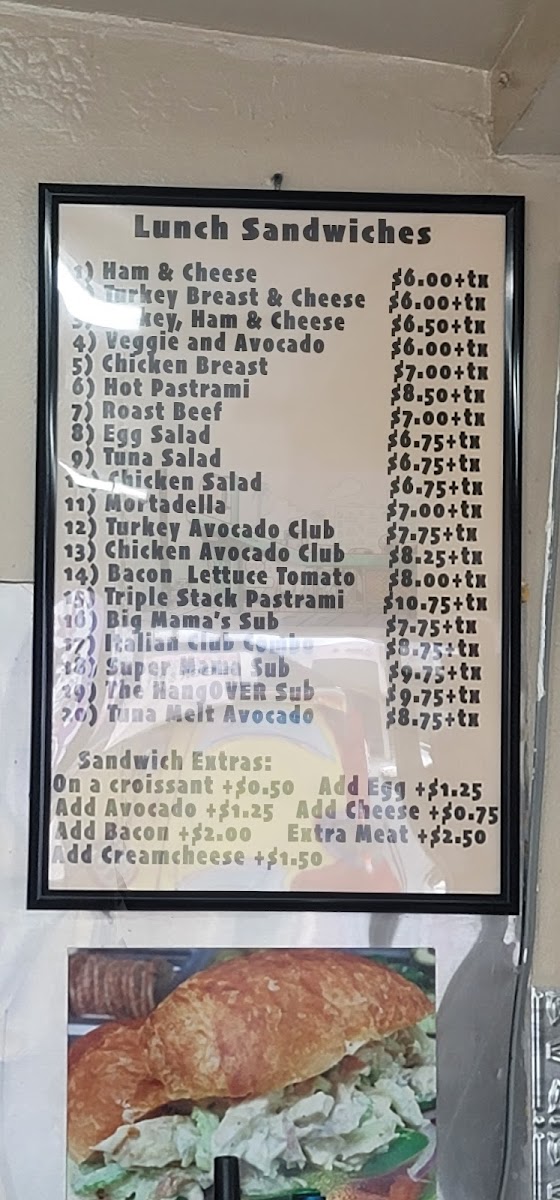 Lunch Sandwiches
1) Ham & Cheese $6.00+tx
Turkey Breast & Cheese $6.00+tx
3) Turkey, Ham & Cheese $6.50+tx
4) Veggie and Avocado $6.00+tx
5) Chicken Breast $7.00+tx
6) Hot Pastrami $8.50+tx
7) Roast Beef $7.00+tx
8) Egg Salad $6.75+tx
9) Tuna Salad $6.75+tx
10) Chicken Salad $6.75+tx
11) Mortadella $7.00+tx
12) Turkey Avocado Club $7.75+tx
13) Chicken Avocado Club $8.25+tx
14) Bacon Lettuce Tomato $8.00+tx
15) Triple Stack Pastrami $10.75+tx
16) Big Mama's Sub $7.75+tx
17) Italian Club Combo $8.75+tx
18) Super Mama Sub $9.75+tx
19) The HangOVER Sub $9.75+tx
20) Tuna Melt Avocado $8.75+tx
Sandwich Extras:
On a croissant +$0.50 Add Egg +$1.25
Add Avocado +$1.25 Add Cheese +$0.75
Add Bacon +$2.00 Extra Meat +$2.50
Add Creamcheese +$1.50